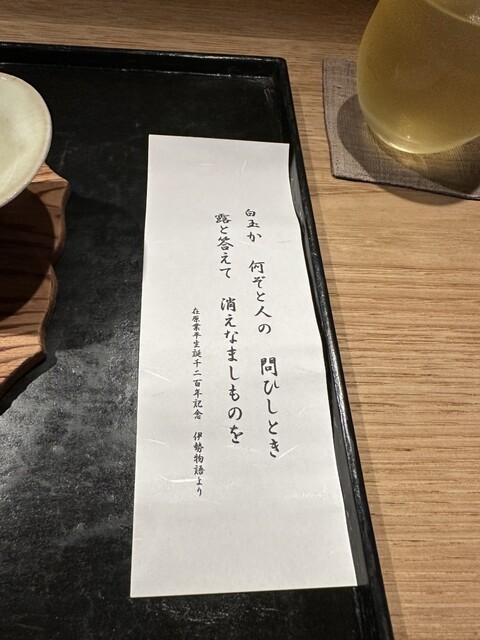 白玉か 何ぞと人の 問ひしとき
露と答えて 消えなましものを
在原業平生誕千二百年記念 伊勢物語より